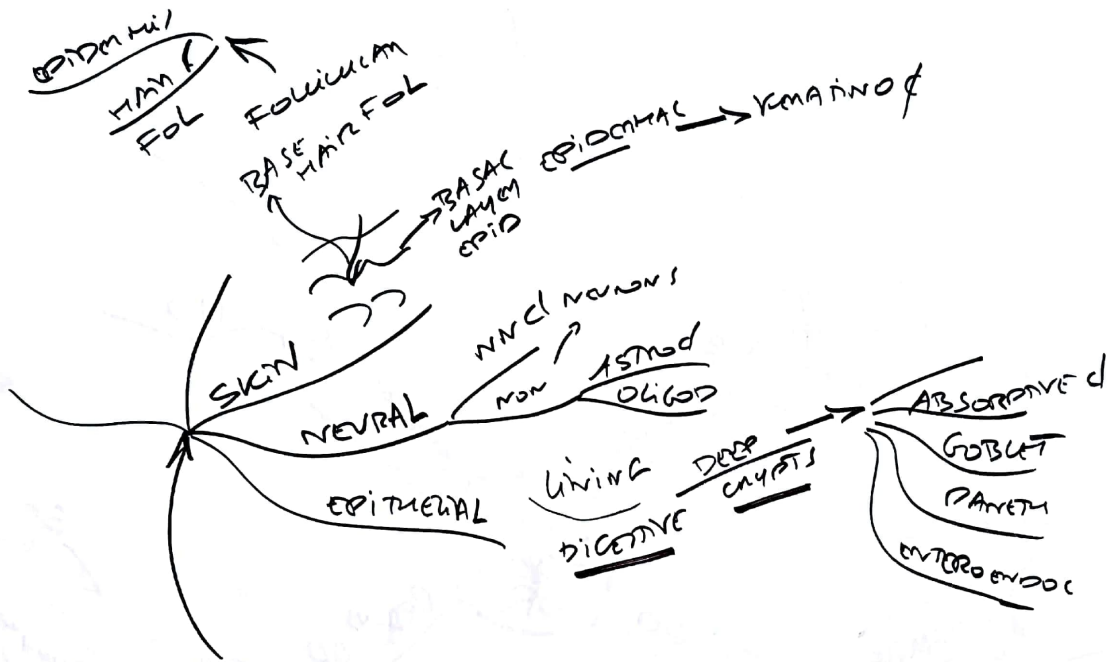 EPIDERMIS
HAIR
FOL
FOLLICULAR
BASE
HAIR FOL
BASAL
LAYER
EPID
EPIDERMAL
KERATINO ¢
SKIN
NEURAL
NN Cl NEURONS
NON
ASTROC
OLIGOD
EPITHELIAL
LINING
DIGESTIVE
DEEP
CRYPTS
ABSORPTIVE Cl
GOBLET
PANETH
ENTEROENDOC